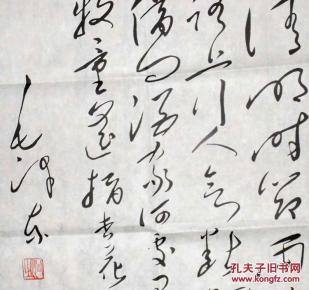 清明时节雨
路上行人欲断
借问酒家何处
牧童遥指杏花
毛泽东
孔夫子旧书网